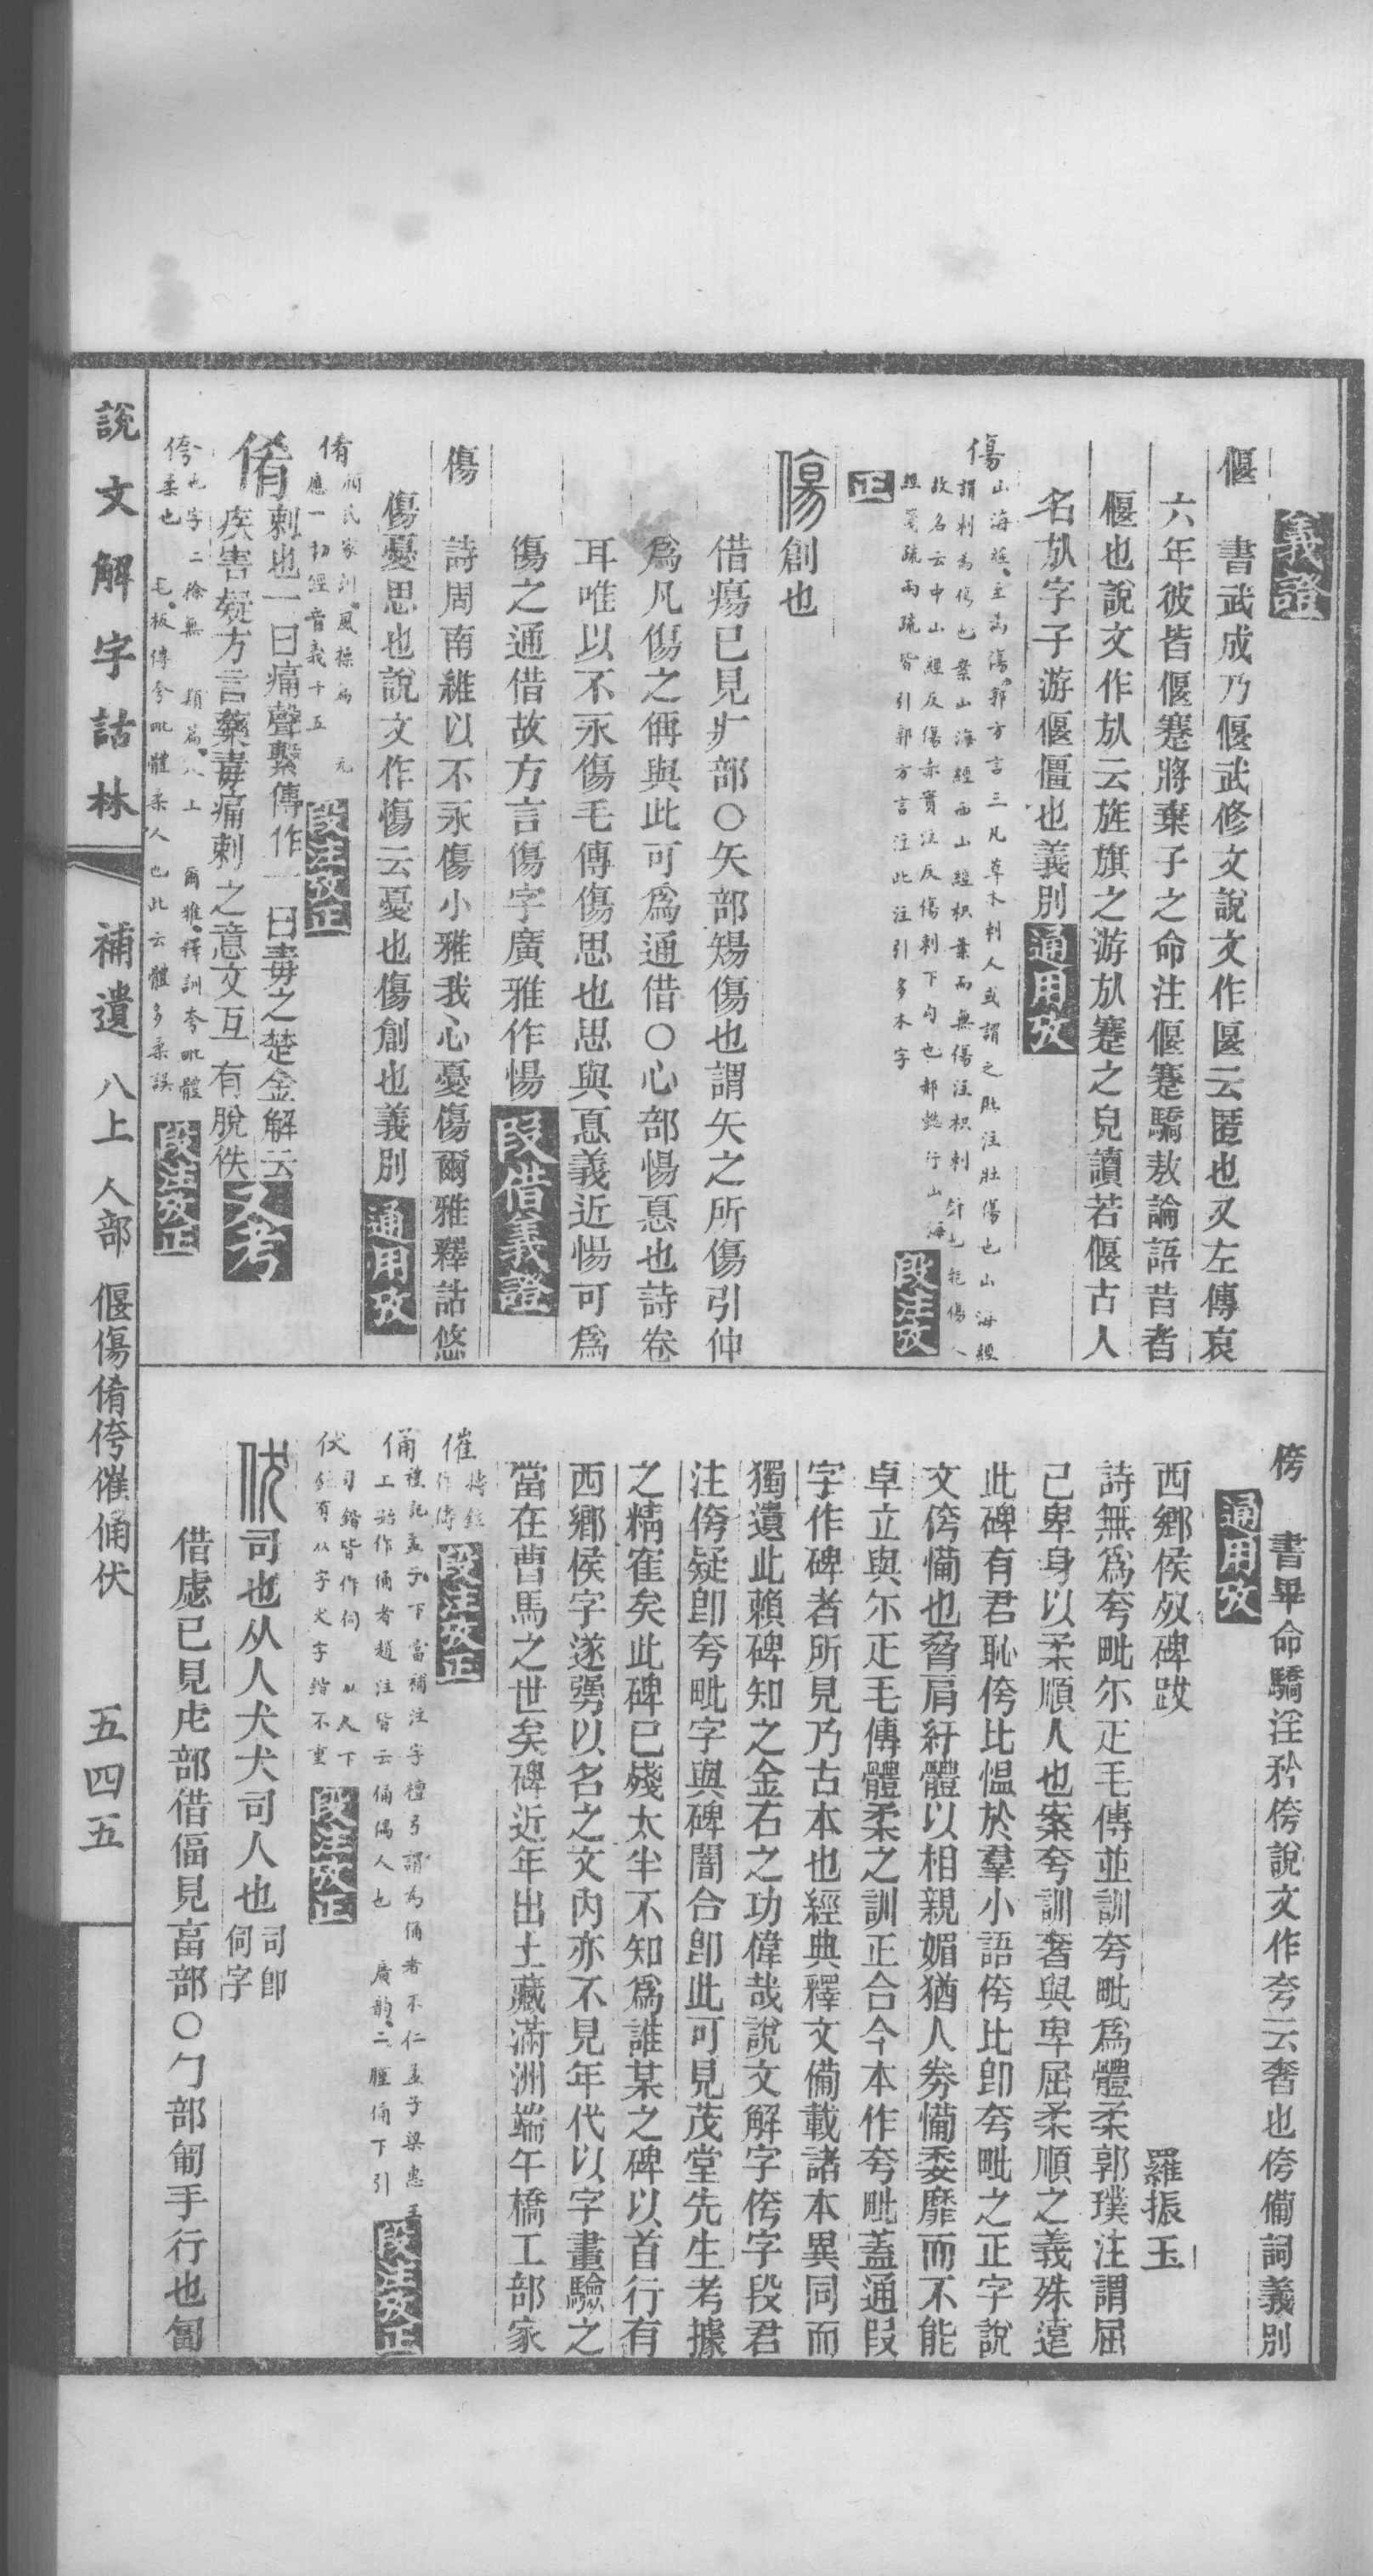 義證
偃　書武成乃偃武修文說文作匽云匿也又左傳哀
六年彼皆偃蹇將棄子之命注偃蹇驕敖論語昔者
偃也說文作㫃云旌旗之游㫃蹇之皃讀若偃古人
名㫃字子游偃僵也義別通用攷
傷山海經
郭方言三凡草木刺人或謂之
注壯傷也山海經
謂刺爲傷也案山海經西山經枳葉而無傷注枳刺
故名云中山經反傷赤實注反傷刺下勾也郝懿行山海
經箋疏兩疏皆引郭方言注此注引多木字
段注攷
正
傷創也
借瘍已見疒部〇矢部煬傷也謂矢之所傷引伸
爲凡傷之偁與此可爲通借〇心部愓惪也詩卷
耳唯以不永傷毛傳傷思也思與惪義近愓可爲
傷之通借故方言傷字廣雅作愓叚借義證
傷　詩周南維以不永傷小雅我心憂傷爾雅釋詁悠
傷憂思也說文作愓云憂也傷創也義別通用攷
侑　顏氏家訓風操篇　元
應一切經音義十五
段注攷正
侑刺也一曰痛聲繫傳作一曰毒之楚金解云
疾害疑方言藥毒痛刺之意文互有脫佚又考
侉也字二徐無　類篇人上　爾雅釋訓夸毗體
柔也　毛板傳夸毗體柔人也此云體多柔誤
段注攷正
侉　書畢命驕淫矜侉說文作夸云奢也侉備詞義別
通用攷
西鄉侯殘碑跋　羅振玉
詩無爲夸毗尒疋毛傳並訓夸毗爲體柔郭璞注謂屈
己卑身以柔順人也案夸訓奢與卑屈柔順之義殊違
此碑有君恥侉比慍於羣小語侉比卽夸毗之正字說
文侉備也脅肩紆體以相親媚猶人劵備委靡而不能
卓立與尒疋毛傳體柔之訓正合今本作夸毗蓋通叚
字作碑者所見乃古本也經典釋文備載諸本異同而
獨遺此賴碑知之金石之功偉哉說文解字侉字段君
注侉疑卽夸毗字與碑闇合卽此可見茂堂先生考據
之精寉矣此碑已殘太半不知爲誰某之碑以首行有
西鄉侯字遂勥以名之文內亦不見年代以字畫驗之
當在曹馬之世矣碑近年出土藏滿洲端午橋工部家
催
作傳
段注攷正
俑　禮記孟子下當補注字檀弓謂爲俑者不仁孟子梁惠王
上始作俑者趙注皆云俑偶人也　廣韵二腫俑下引
段注攷正
伏　司鍇皆作伺　从人下
鉉有从字犬字鍇不重
段注攷正
伏司也从人犬犬司人也司卽伺字
借虙已見虍部借偪見畐部〇勹部匍手行也匐
說文解字詁林　補遺　八上　人部　偃傷侑侉催俑伏　五四五